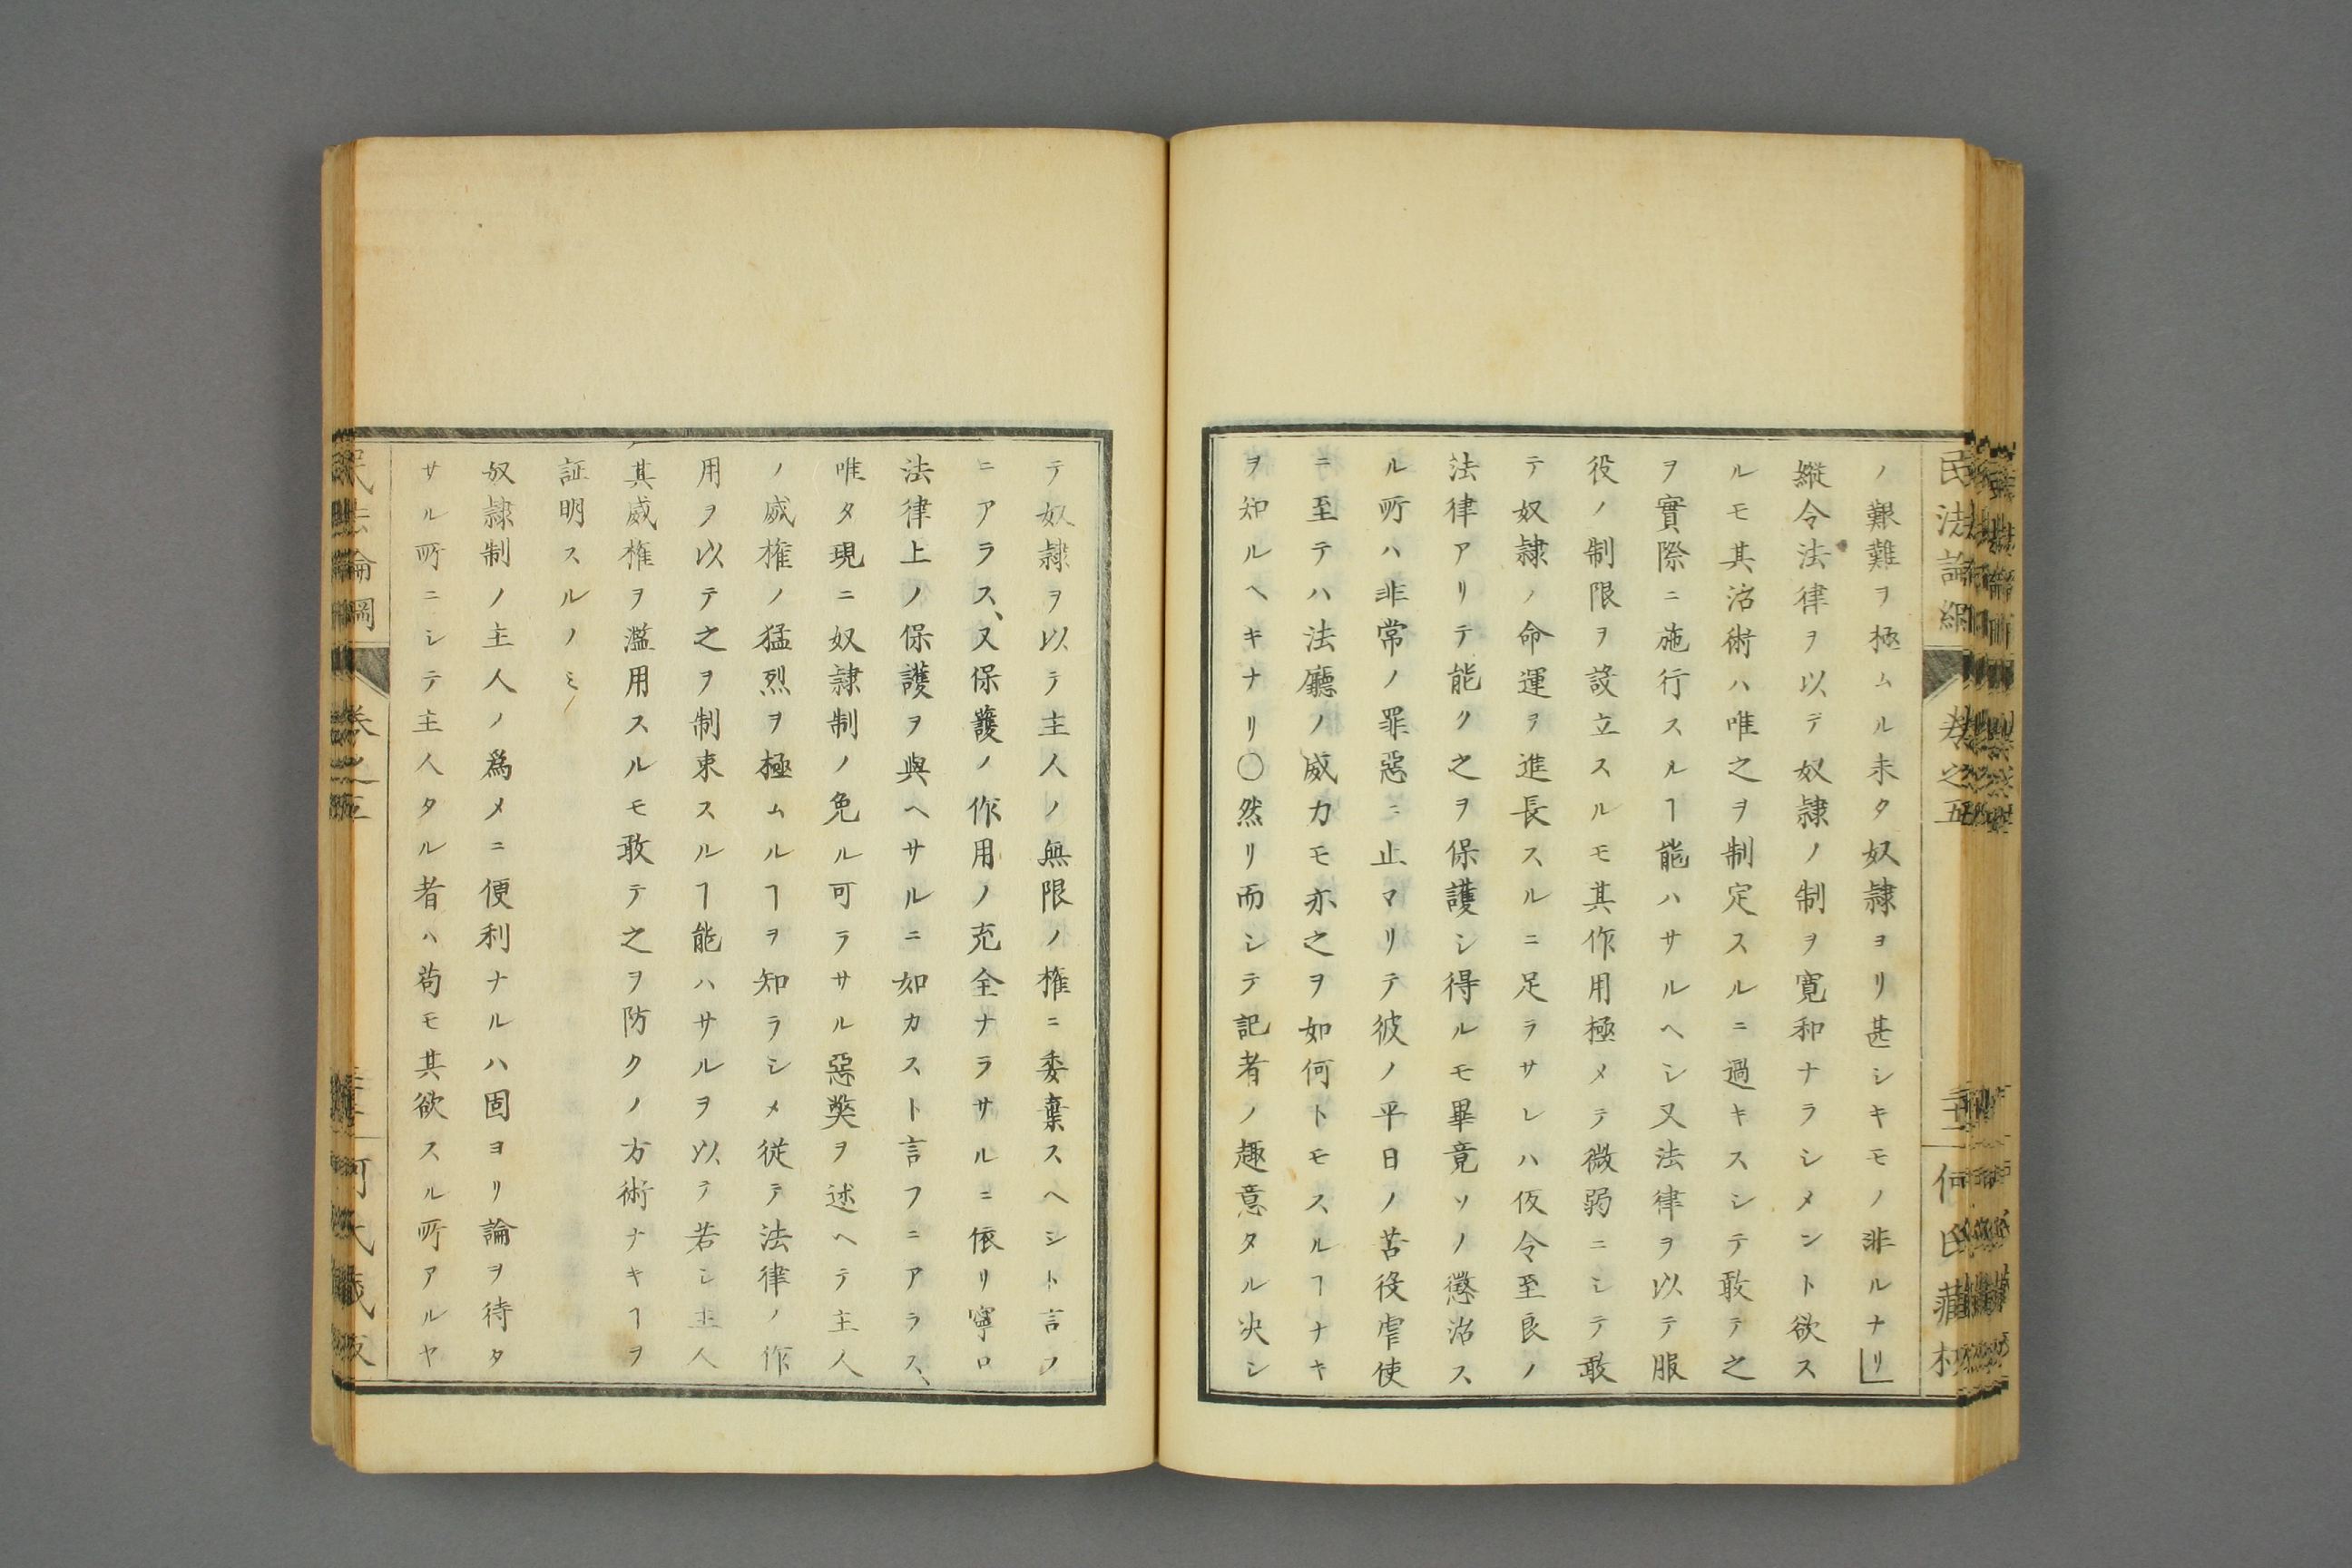 民法論綱 卷之五 何氏藏板
ノ艱難ヲ極ムル未タ奴隷ヨリ甚シキモノ非ルナリ
縱令法律ヲ以テ奴隷ノ制ヲ寬和ナラシメント欲ス
ルモ其治術ハ唯之ヲ制定スルニ過キスシテ敢テ之
ヲ實際ニ施行スルヿ能ハサルヘシ又法律ヲ以テ服
役ノ制限ヲ設立スルモ其作用極メテ微弱ニシテ敢
テ奴隷ノ命運ヲ進長スルニ足ラサレハ仮令至良ノ
法律アリテ能ク之ヲ保護シ得ルモ畢竟ソノ懲治ス
ル所ハ非常ノ罪惡ニ止マリテ彼ノ平日ノ苦役虐使
ニ至テハ法廳ノ威力モ亦之ヲ如何トモスルヿナキ
ヲ知ルヘキナリ〇然リ而シテ記者ノ趣意タル决シ
テ奴隷ヲ以テ主人ノ無限ノ権ニ委棄スヘシト言フ
ニアラス、又保護ノ作用ノ充全ナラサルニ依リ寧ロ
法律上ノ保護ヲ與ヘサルニ如カスト言フニアラス、
唯タ現ニ奴隷制ノ免ル可ラサル惡獘ヲ述ヘテ主人
ノ威権ノ猛烈ヲ極ムルヿヲ知ラシメ従テ法律ノ作
用ヲ以テ之ヲ制束スルヿ能ハサルヲ以テ若シ主人
其威権ヲ濫用スルモ敢テ之ヲ防クノ方術ナキヿヲ
証明スルノミ
奴隷制ノ主人ノ爲メニ便利ナルハ固ヨリ論ヲ待タ
サル所ニシテ主人タル者ハ苟モ其欲スル所アルヤ
民法論綱 卷之五 何氏藏板